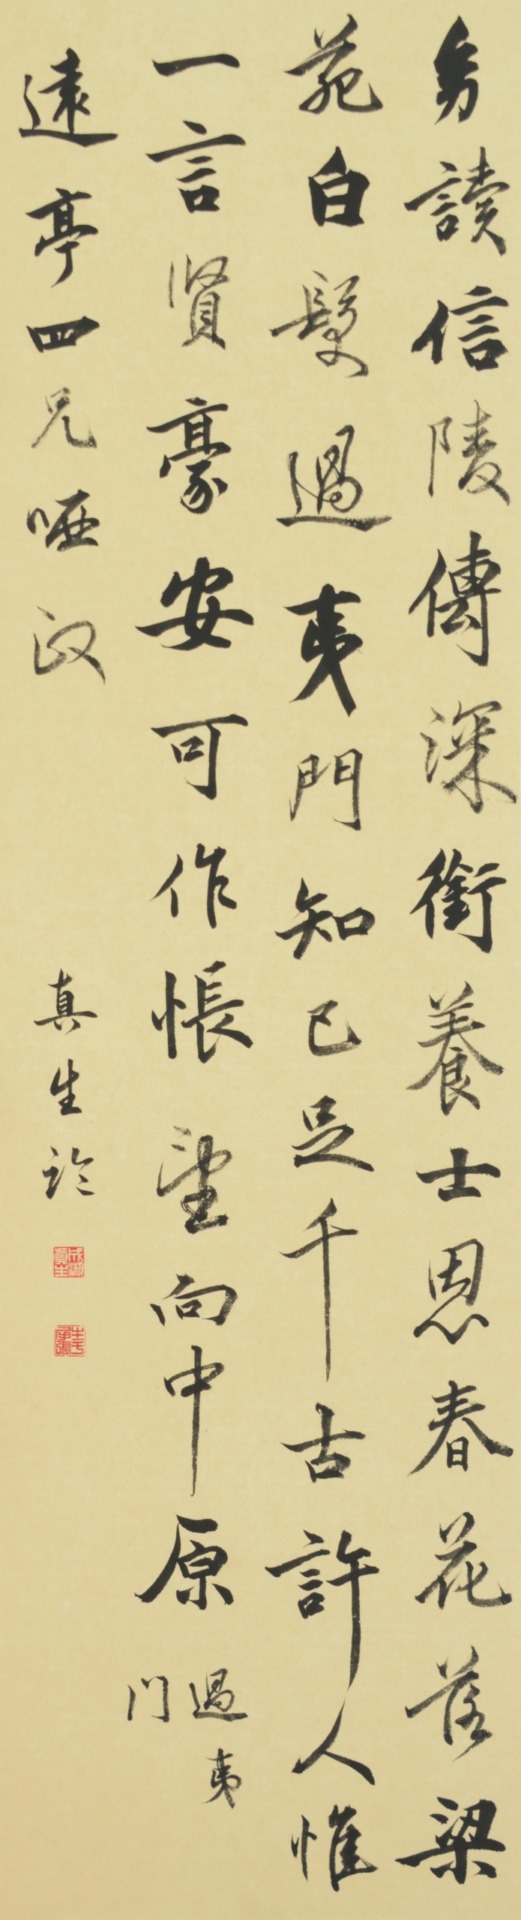 每讀信陵傳深銜養士恩春花落梁
苑白髮過夷門知己足千古許人惟
一言賢豪安可作悵望向中原
過夷
門
遠亭四兄哂政
真生